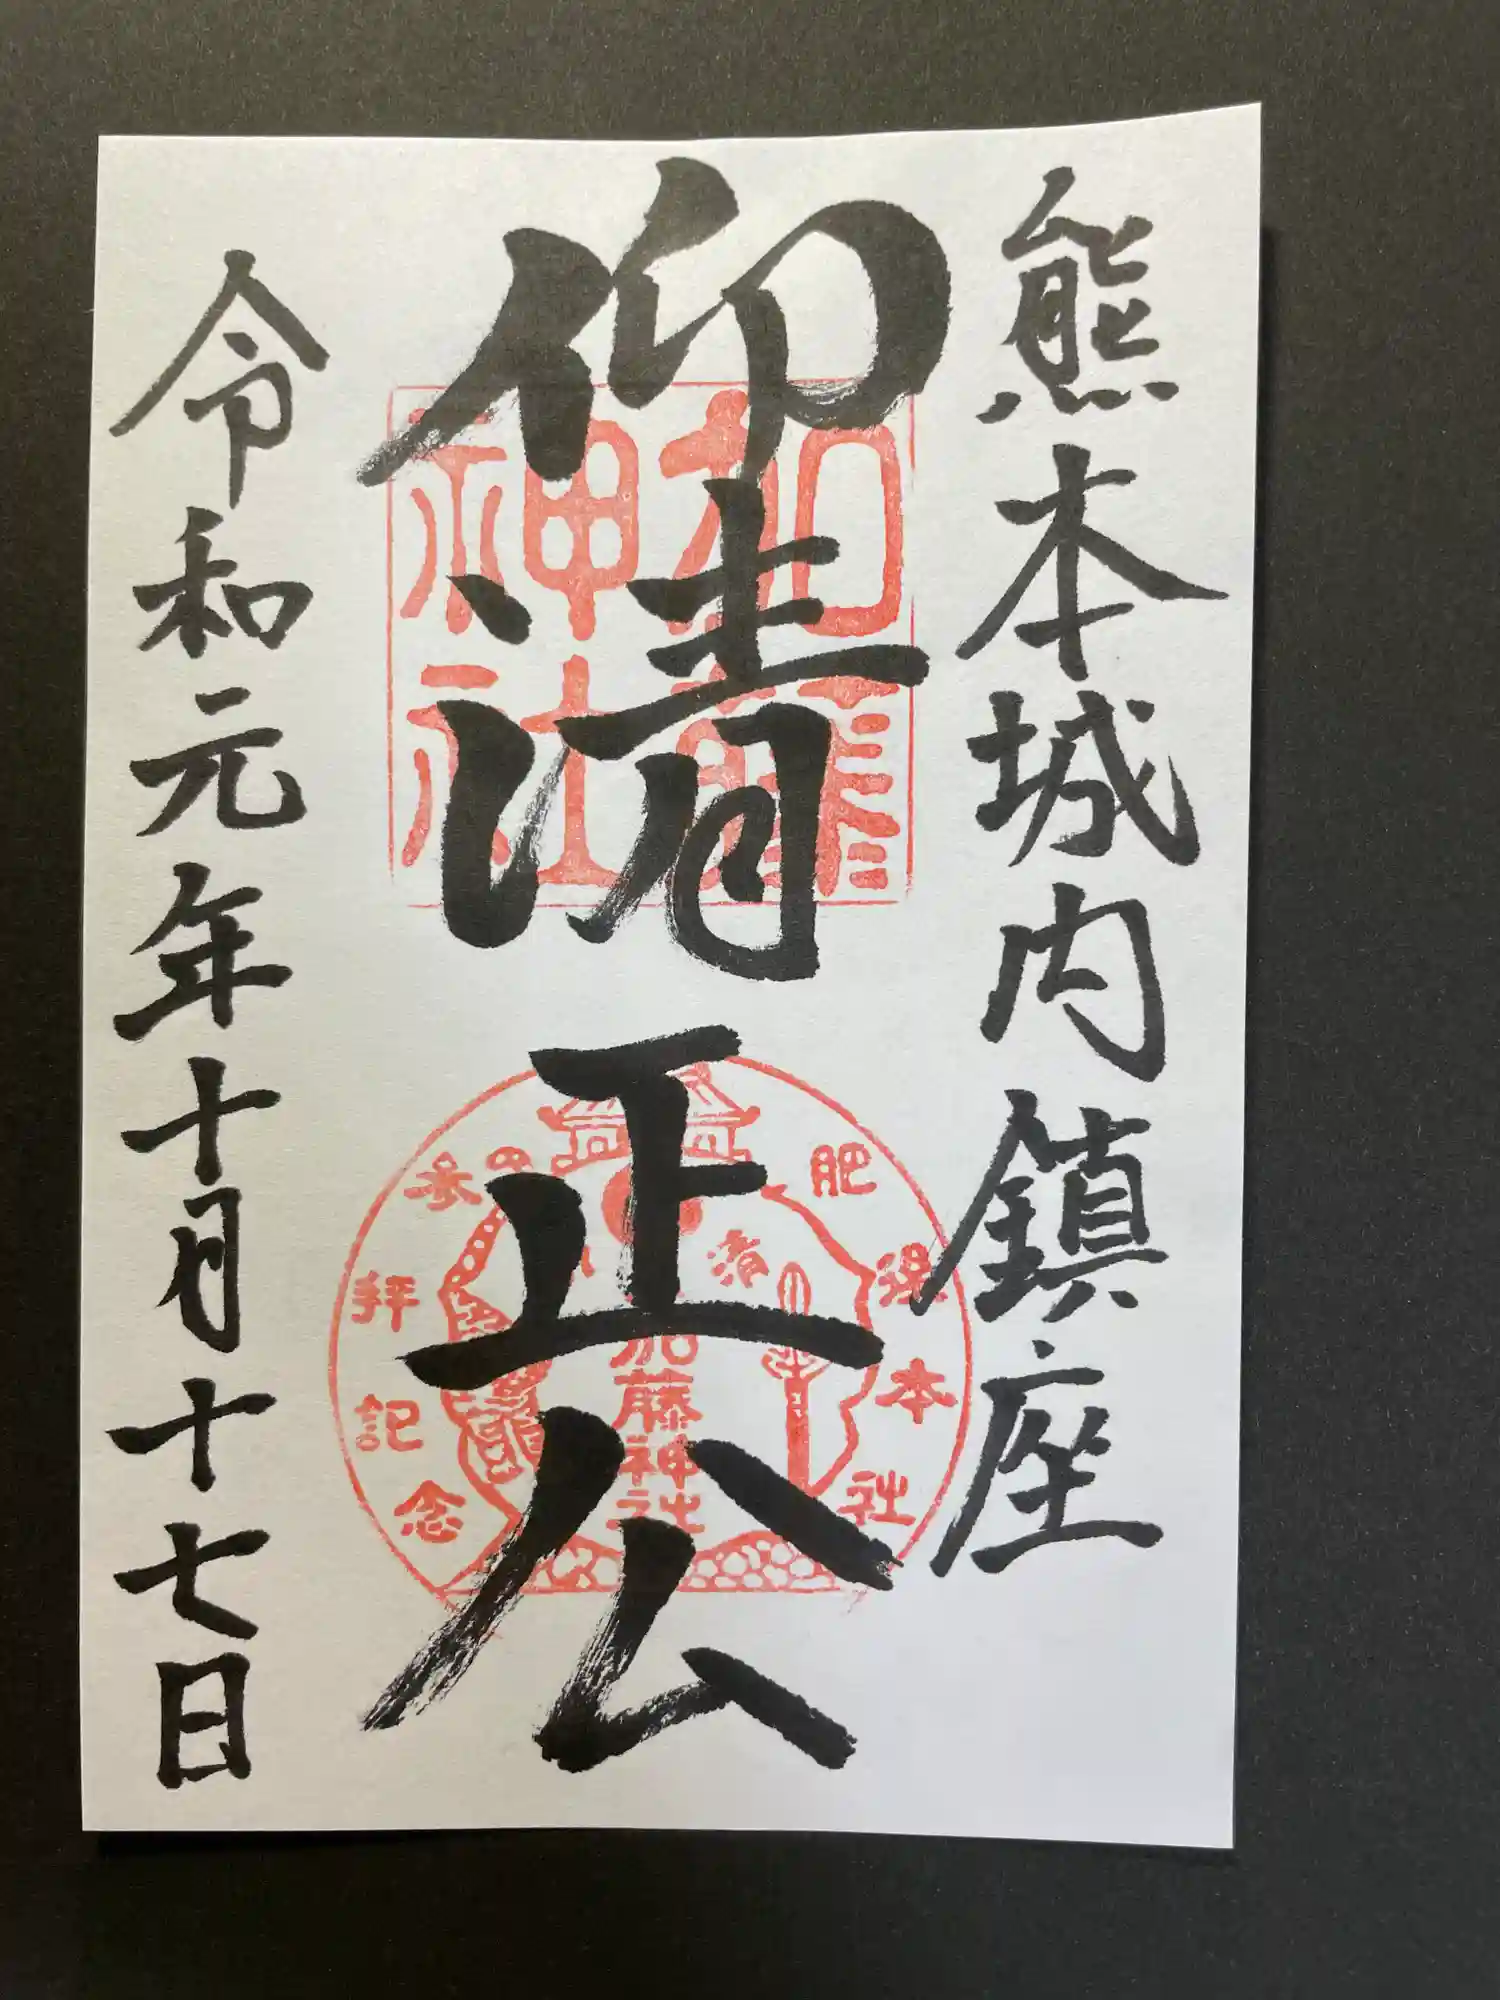 熊本城内鎮座
仰清正公
令和元年十月十七日
加藤
神社
肥後本社
参拝記念
清
加藤神社